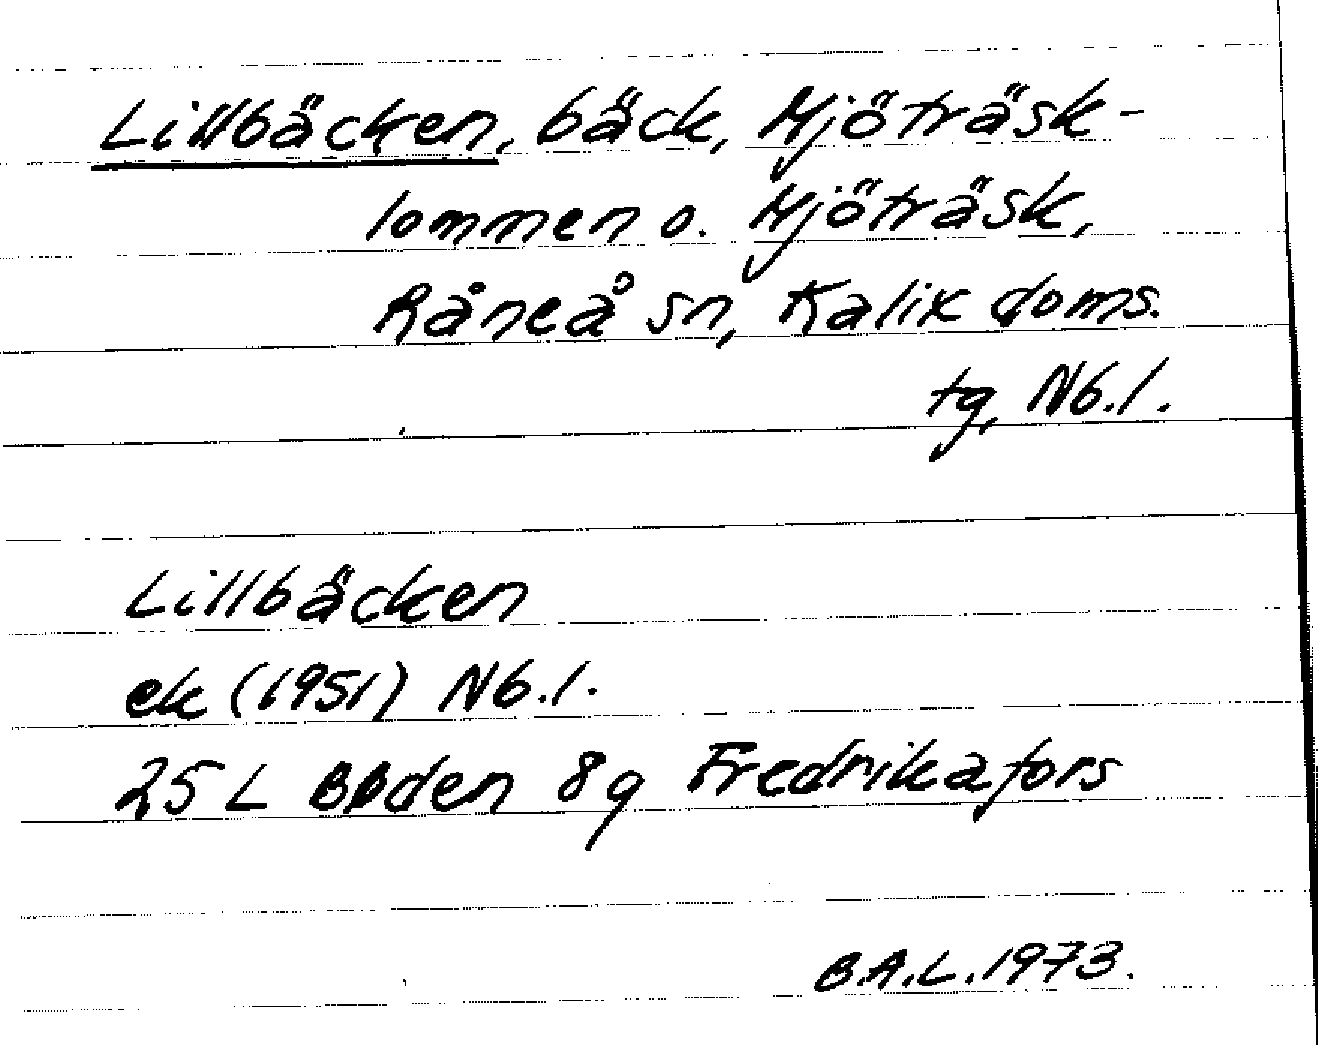 Lillbäcken, bäck, Mjöträsk-
lommen o. Mjöträsk,
Råneå sn, Kalix doms.
tg, Nb.l.
Lillbäcken
ek (1951) Nb.l.
25 L Boden 8g Fredrikafors
B.A.L. 1973.